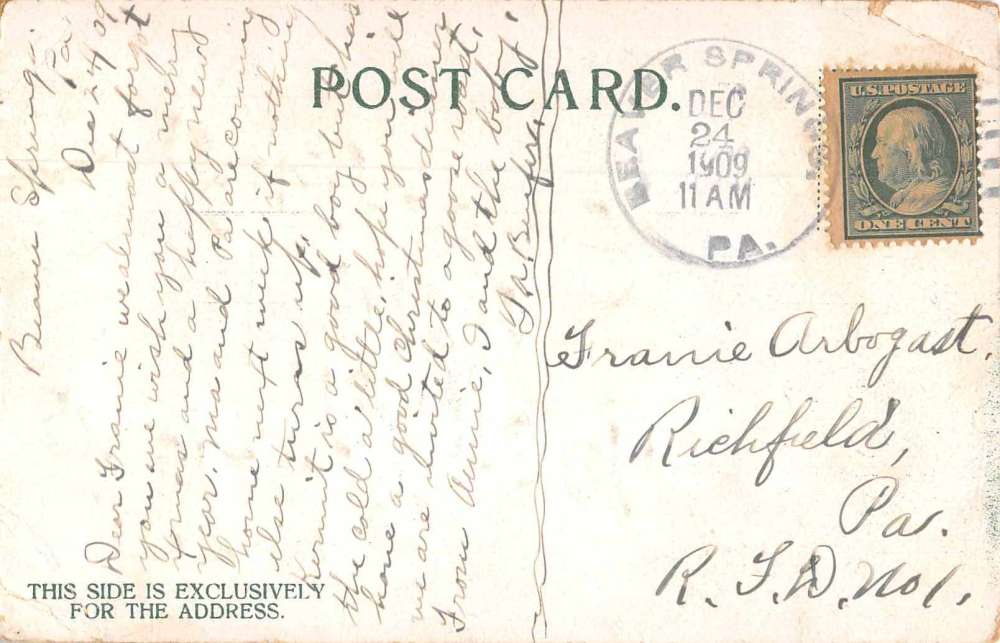 POST CARD.
BEAVER SPRINGS
DEC
24
1909
11 AM
PA.
U.S. POSTAGE
ONE CENT
Beaver Springs.
Pa
Dec 24 09
Dear Franie we almost forgot
you we wish you a mery
Xmas and a happy new
year. Ma and Pa are coming
home next week if nothing
else turns up.
Kermit is a good boy but has
the cold a little, hope you will
have a good Christmas dinner
we are invited to a goose roast.
From Annie, I and the boy.
Franie Arbogast.
Richfield,
Pa.
R. F. D. No 1.
THIS SIDE IS EXCLUSIVELY
FOR THE ADDRESS.